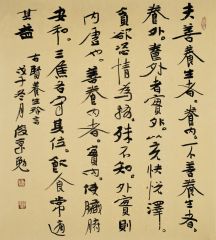 夫善養生者養內不善養生者
養外養外者實外以充快悦澤
貪欲恣情為務殊不知外實則
內虛也善養內者實內使臟腑
安和三焦各守其位飲食常適
其宜
養生
戊子冬月